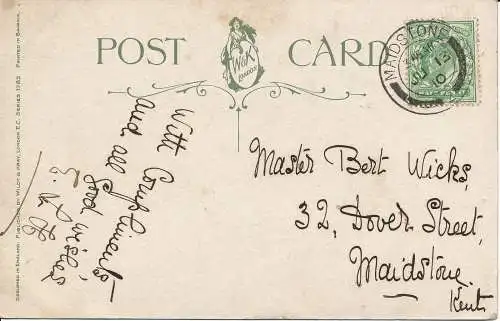 POST CARD
W&K
LONDON
MAIDSTONE
JU 13
10
With Compliments
and all Good wishes
Master Bert Wicks,
32, Dover Street,
Maidstone.
Kent
DESIGNED IN ENGLAND. PUBLISHED BY WILDT & KRAY, LONDON E.C. SERIES 1982 PRINTED IN BAVARIA.